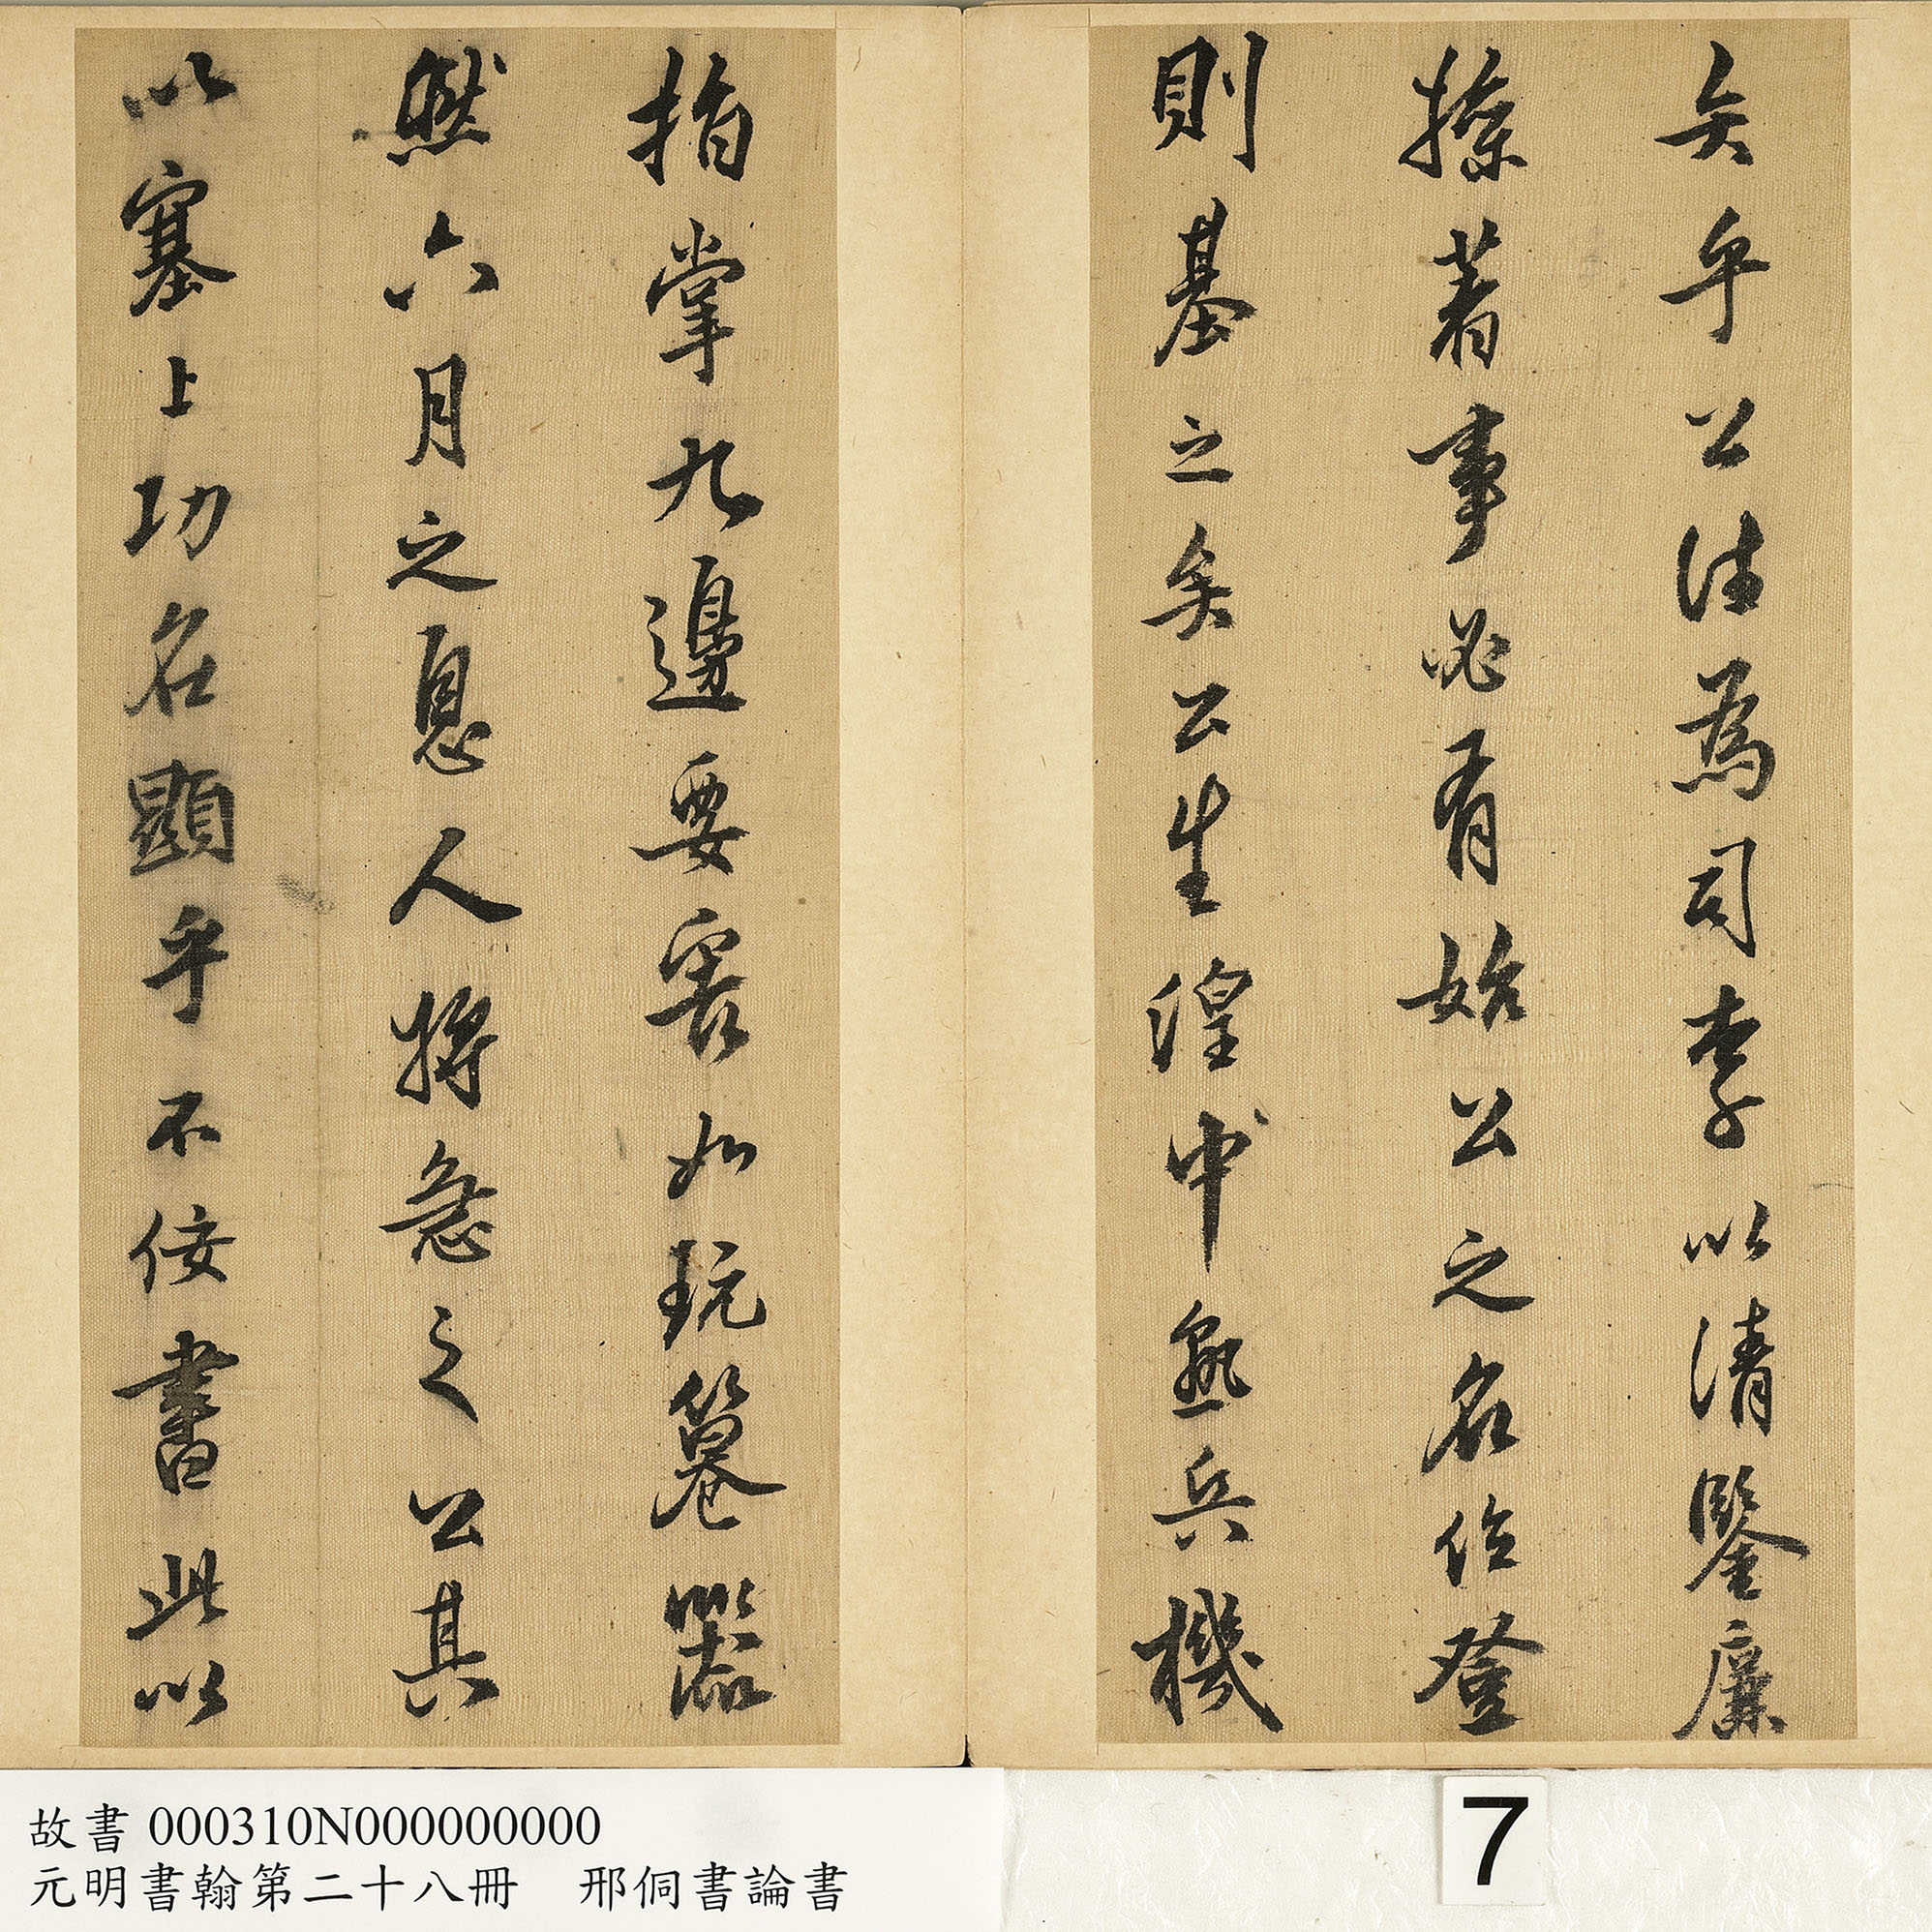 矣乎公往為司李以清鑒廉
操著事必有始公之名位登
則基之矣公生湟中熟兵機
指掌九邊要害如玩器
然六月之息人將急之公其
以塞上功名顯乎不佞書此以
故書 000310N000000000
元明書翰第二十八冊 邢侗書論書
7